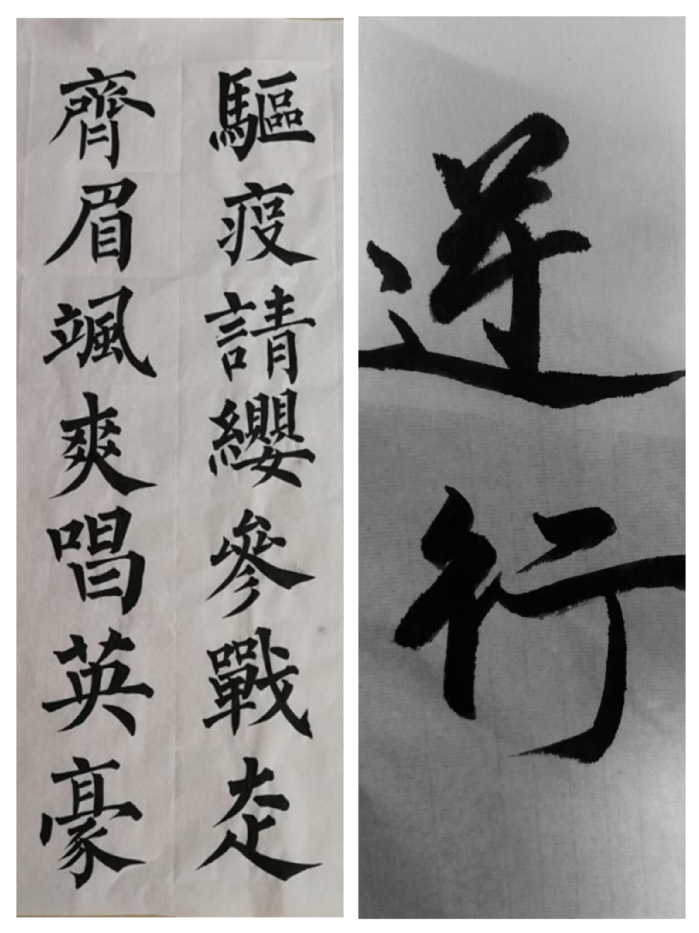 驅疫請纓參戰走
齊眉颯爽唱英豪
逆行